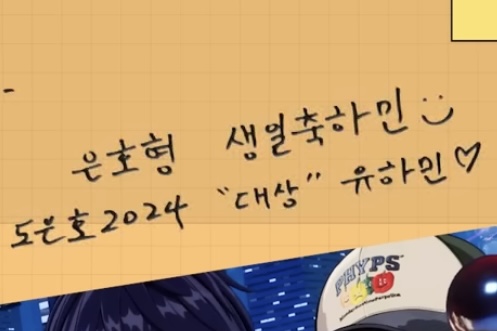 은호형 생일축하민 :)
도은호2024 “대상” 유하민♡
PHYPS